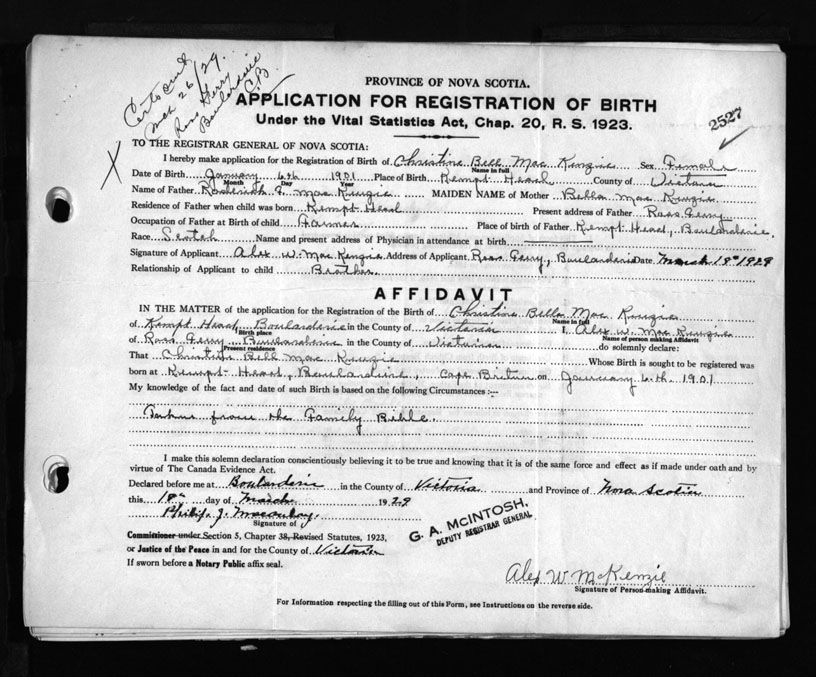 Cert sent
Mch 26/29.
Ross Ferry
Boulardarie
C.B
PROVINCE OF NOVA SCOTIA.
APPLICATION FOR REGISTRATION OF BIRTH
Under the Vital Statistics Act, Chap. 20, R. S. 1923.
2527
X TO THE REGISTRAR GENERAL OF NOVA SCOTIA:
I hereby make application for the Registration of Birth of Christine Bell Mac Kinzie Sex Female
Name in full
Date of Birth January 6th 1901 Place of Birth Kempt Head County of Victoria
Month Day Year
Name of Father Mac Kinzie MAIDEN NAME of Mother Bella Mac Kinzie
Residence of Father when child was born Kempt Head Present address of Father Ross Ferry
Occupation of Father at Birth of child Farmer Place of birth of Father Kempt Head, Boulardarie.
Race Scotch Name and present address of Physician in attendance at birth
Signature of Applicant Alex W. Mac Kenzie Address of Applicant Ross Ferry, Boulardarie Date March 18th 1929
Relationship of Applicant to child Brother
AFFIDAVIT
IN THE MATTER of the application for the Registration of the Birth of Christine Bella Mac Kinzie
Name in full
of Kempt Head, Boulardarie in the County of Victoria I, Alex W. Mac Kinzie
Birth place Name of person making Affidavit
of Ross Ferry Boulardarie in the County of Victoria do solemnly declare:
Present residence
That Christine Bell Mac Kinzie Whose Birth is sought to be registered was
born at Kempt Head, Boulardarie, Cape Breton on January 6th. 1901
My knowledge of the fact and date of such Birth is based on the following Circumstances:—
Taken from the Family Bible.
I make this solemn declaration conscientiously believing it to be true and knowing that it is of the same force and effect as if made under oath and by
virtue of The Canada Evidence Act.
Declared before me at Boularderie in the County of Victoria and Province of Nova Scotia
this 18th day of March 1929
Philip J. Macaulay.
Signature of
G. A. McINTOSH,
DEPUTY REGISTRAR GENERAL
Commissioner under Section 5, Chapter 38, Revised Statutes, 1923,
or Justice of the Peace in and for the County of Victoria
If sworn before a Notary Public affix seal.
Alex W McKenzie
Signature of Person making Affidavit.
For Information respecting the filling out of this Form, see Instructions on the reverse side.